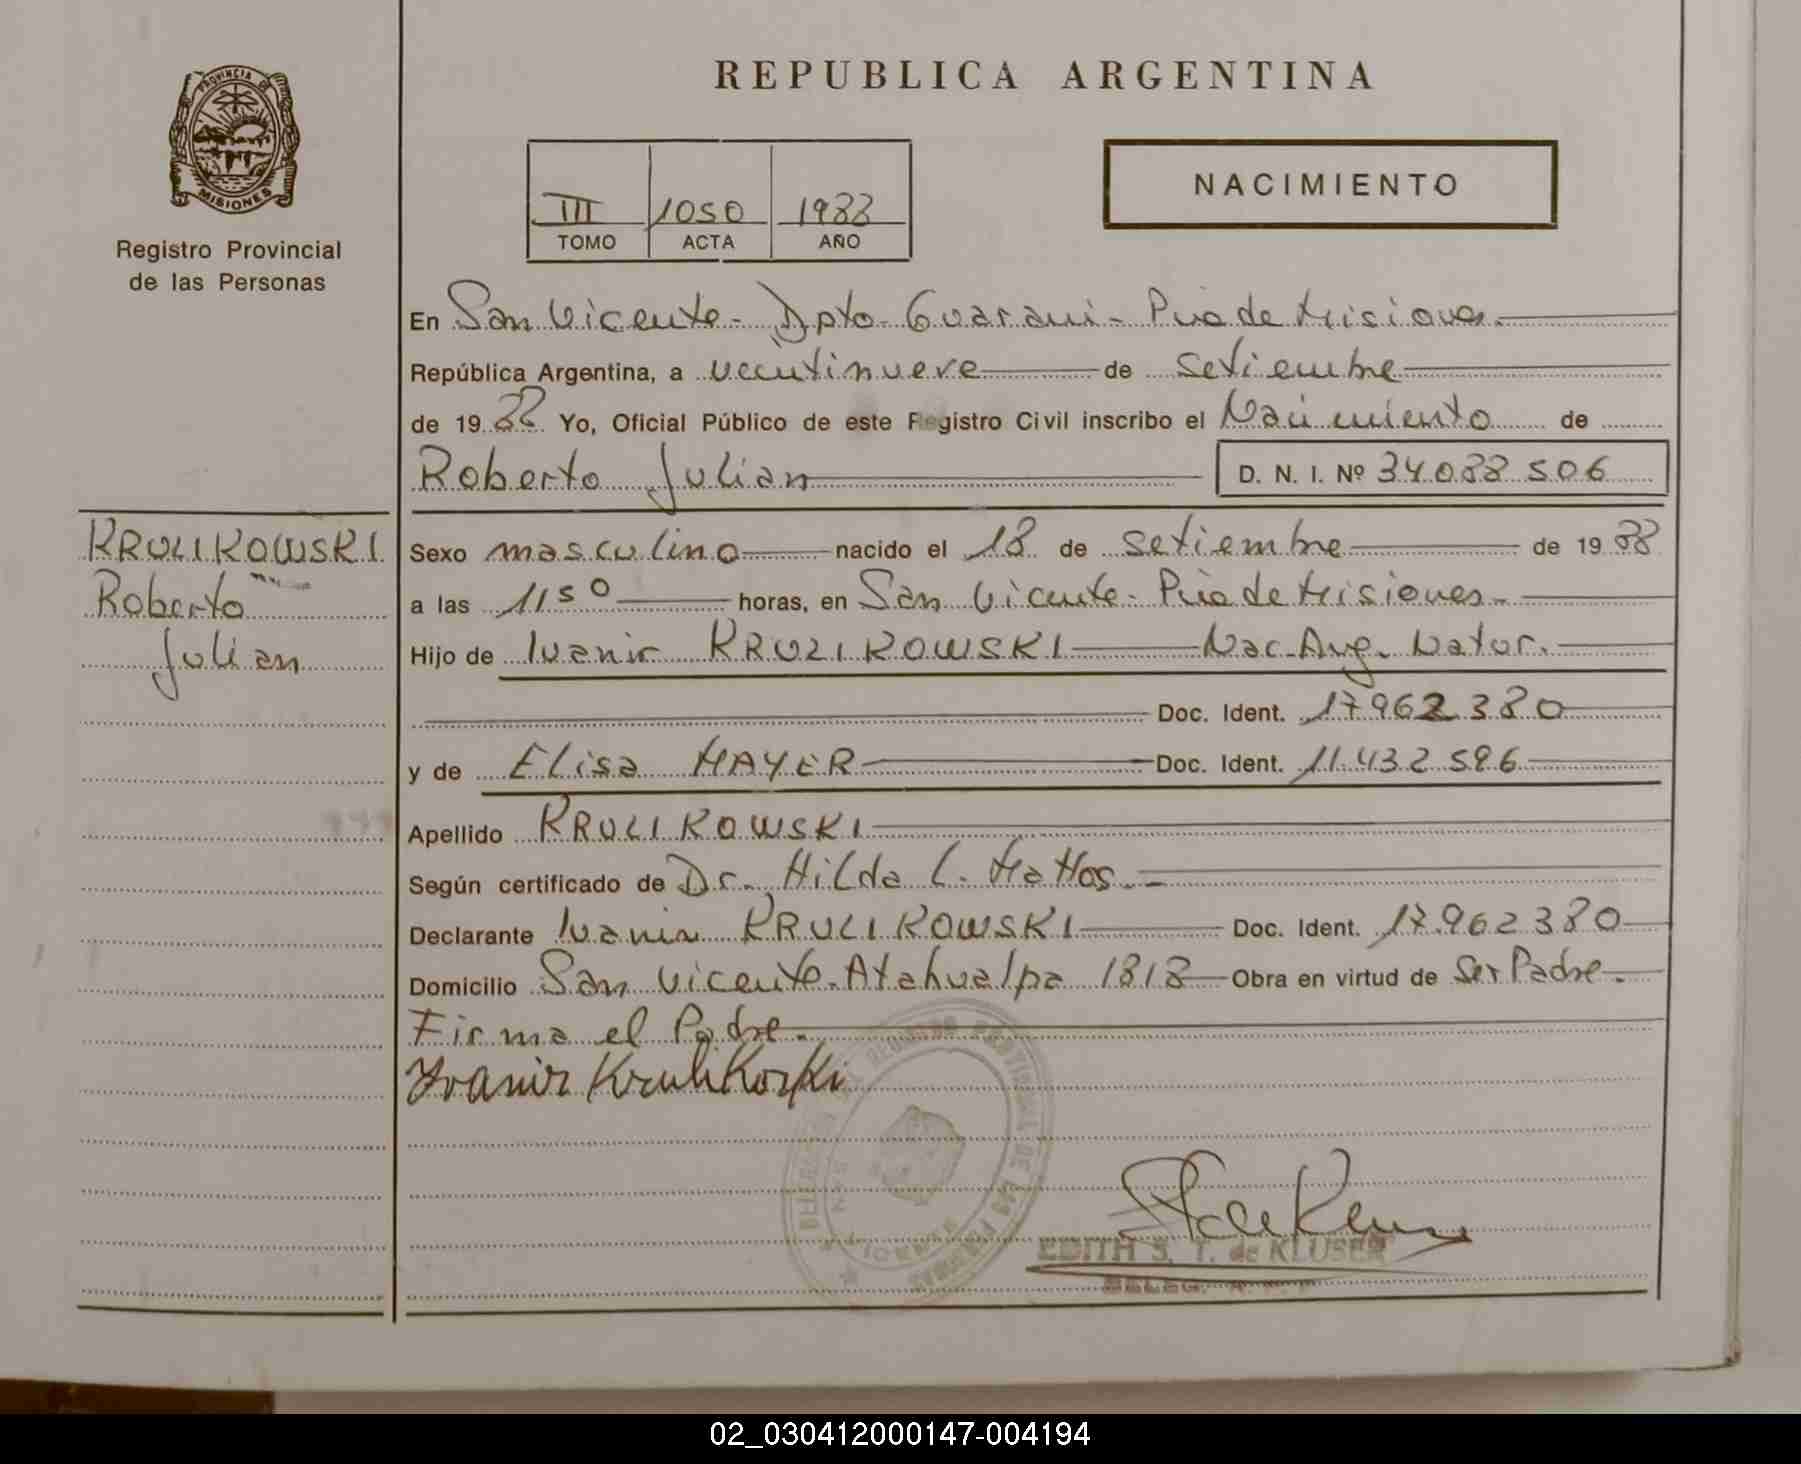 REPUBLICA ARGENTINA
PROVINCIA DE
MISIONES
Registro Provincial
de las Personas
III 1050 1988
TOMO ACTA AÑO
NACIMIENTO
En San Vicente - Dpto - Guarani - Pcia de Misiones.
República Argentina, a veintinueve de setiembre
de 1988 Yo, Oficial Público de este Registro Civil inscribo el Nacimiento de
Roberto Julian D. N. I. Nº 34.088.506
KRULIKOWSKI
Roberto
Julian
Sexo masculino nacido el 18 de setiembre de 1988
a las 11 50 horas, en San Vicente - Pcia de Misiones -
Hijo de Ivanir KRULIKOWSKI Nac. Arg. Natur.
Doc. Ident. 17.962.380
y de Elisa MAYER Doc. Ident. 11.432.596
Apellido KRULIKOWSKI
Según certificado de Dr. Hilda L. Mattos. -
Declarante Ivanir KRULIKOWSKI Doc. Ident. 17.962.380
Domicilio San Vicente - Atahualpa 1818 Obra en virtud de Ser Padre.
Firma el Padre.
Yvanir Krulikoski
EDITH S. T. de KLUSER
02_030412000147-004194